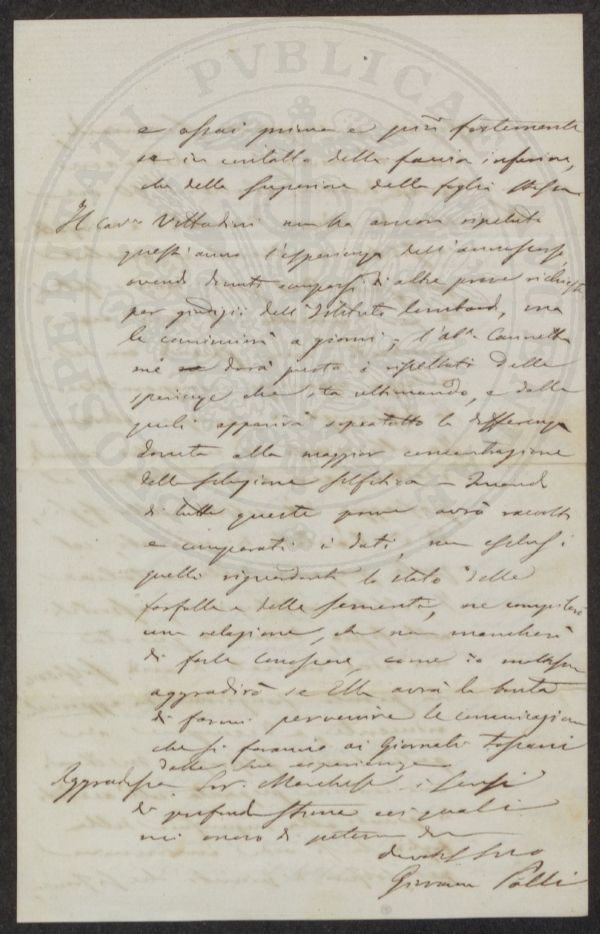 e assai prima e più fortemente
se in contatto della faccia inferiore,
che della superiore della foglia stessa
Il Cav.re Vittadini non ha ancora ripetuto
quest'anno l'esperienza dell'anno scorso,
avendo dovuto occuparsi di altre prove richieste
per giudizii dell'Istituto lombardo, ma
le comincierà a giorni; l'ab.e
me darà presto i risultati delle
sperienze che sta ultimando, e dalle
quali apparirà sopratutto la differenza
dovuta alla maggior concentrazione
della soluzione solfitica – Quando
di tutte queste prove avrò raccolti
e comparati i dati, non esclusi
quelli riguardanti lo stato delle
farfalle e delle sementi, ne compilerò
una relazione, che non mancherò
di farle conoscere, come io
aggradirò se Ella avrà la bontà
di farmi pervenire le comunicazioni
che si faranno ai Giornali Toscani
delle sue esperienze
Aggradisca Sig. Marchese i sensi
di profonda stima coi quali
mi onoro di potermi dire
devotiss suo
Giovanni Polli
PVBLICAE
PROSPERITATI